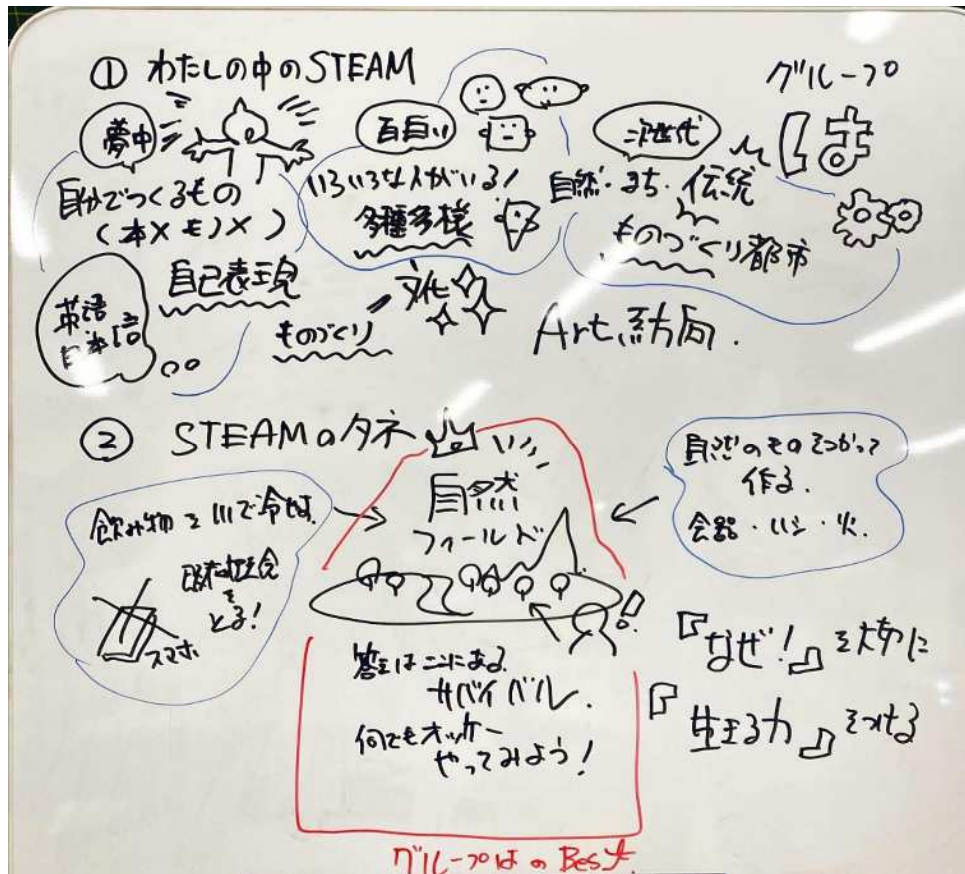 ① わたしの中のSTEAM
グループ
ほ
夢中
自分でつくるもの
(本×モノ× )
自己表現
英語
日本語
面白い
いろいろな人がいる!
多種多様
文化
ものづくり
次世代
自然・まち・伝統
ものづくり都市
Art、方向.
② STEAMのタネ
自然
フィールド
飲み物を川で冷やす
既存概念
をとる!
スマホ
自然のものをつかって
作る.
食器・いす・火.
答えはここにある.
サバイバル.
何でもオッケー
やってみよう!
『なぜ!』を大切に
『生きる力』をつける
グループほのBest.